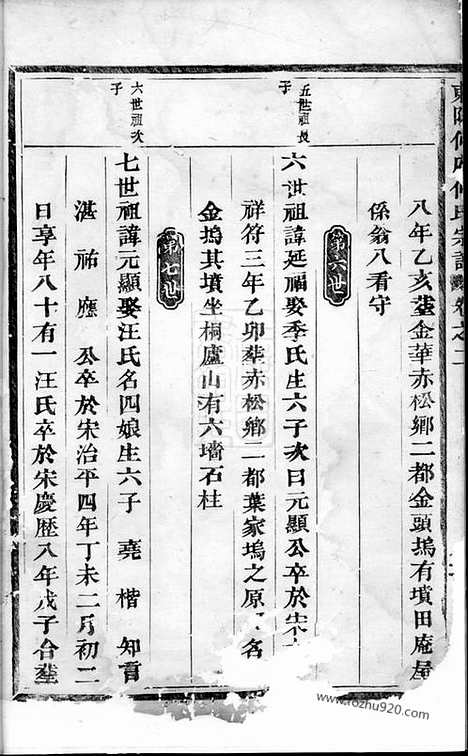 東陽何府何氏宗譜卷之二
八年乙亥塟金華赤松鄉二都金頭塢有墳田庵屋
係翁八看守
第六世
五世祖長
子
六世祖諱延福娶季氏生六子次曰元顯公卒於宋
祥符三年乙卯塟赤松鄉二都葉家塢之原 名
金塢其墳坐桐廬山有六墻石柱
第七世
六世祖次
子
七世祖諱元顯娶汪氏名四娘生六子 堯 楷 知 育
湛 祐 應 公卒於宋治平四年丁未二月初二
日享年八十有一汪氏卒於宋慶歷八年戊子合塟
www.rozhu920.com